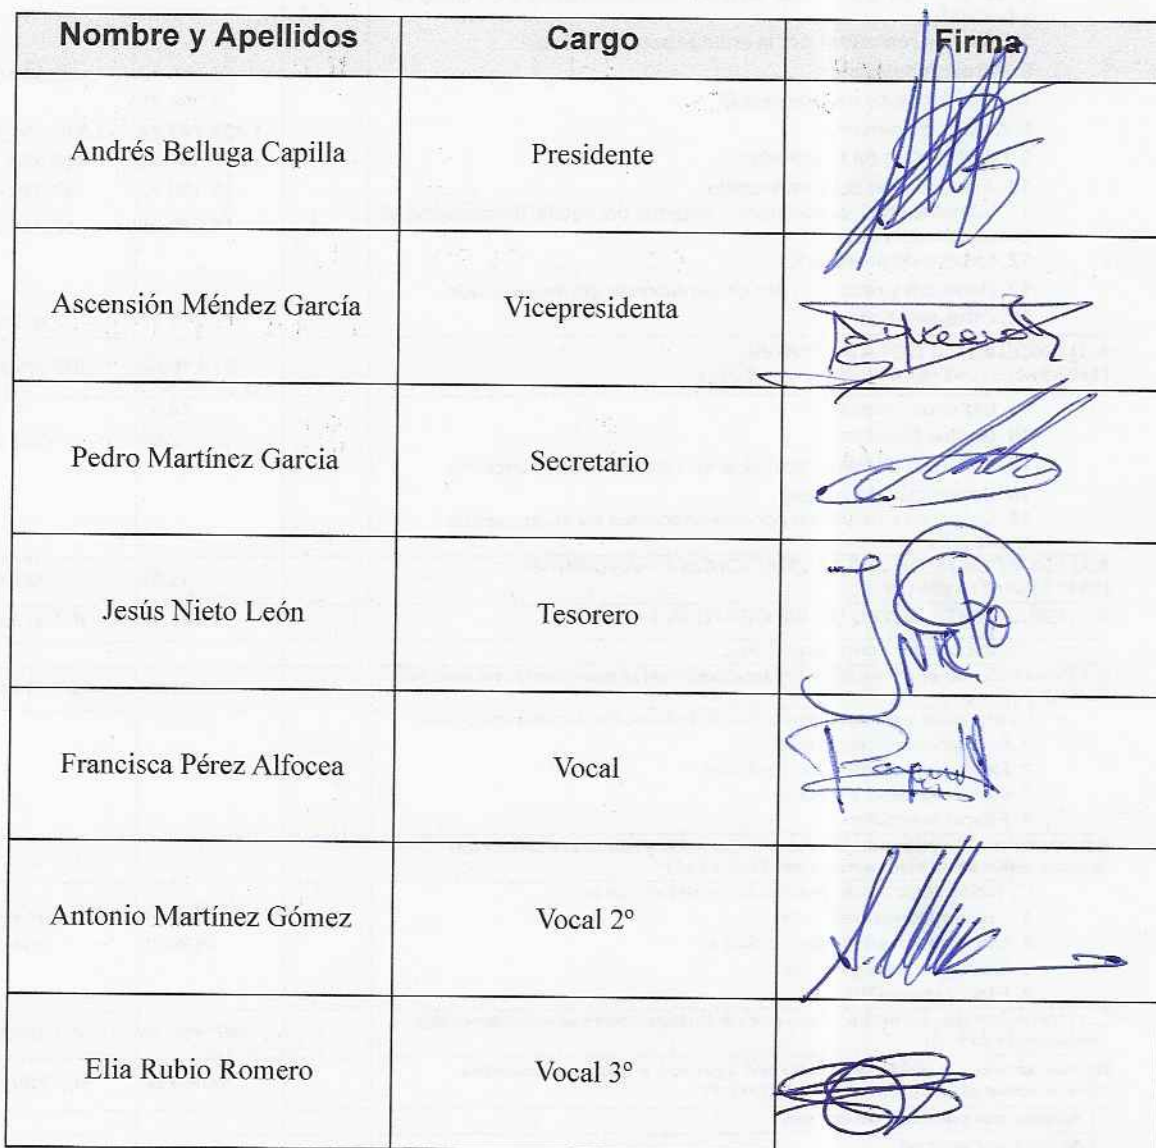 Nombre y Apellidos Cargo Firma
Andrés Belluga Capilla Presidente
Ascensión Méndez García Vicepresidenta
Pedro Martínez Garcia Secretario
Jesús Nieto León Tesorero
JNieto
Francisca Pérez Alfocea Vocal
Antonio Martínez Gómez Vocal 2º
Elia Rubio Romero Vocal 3º